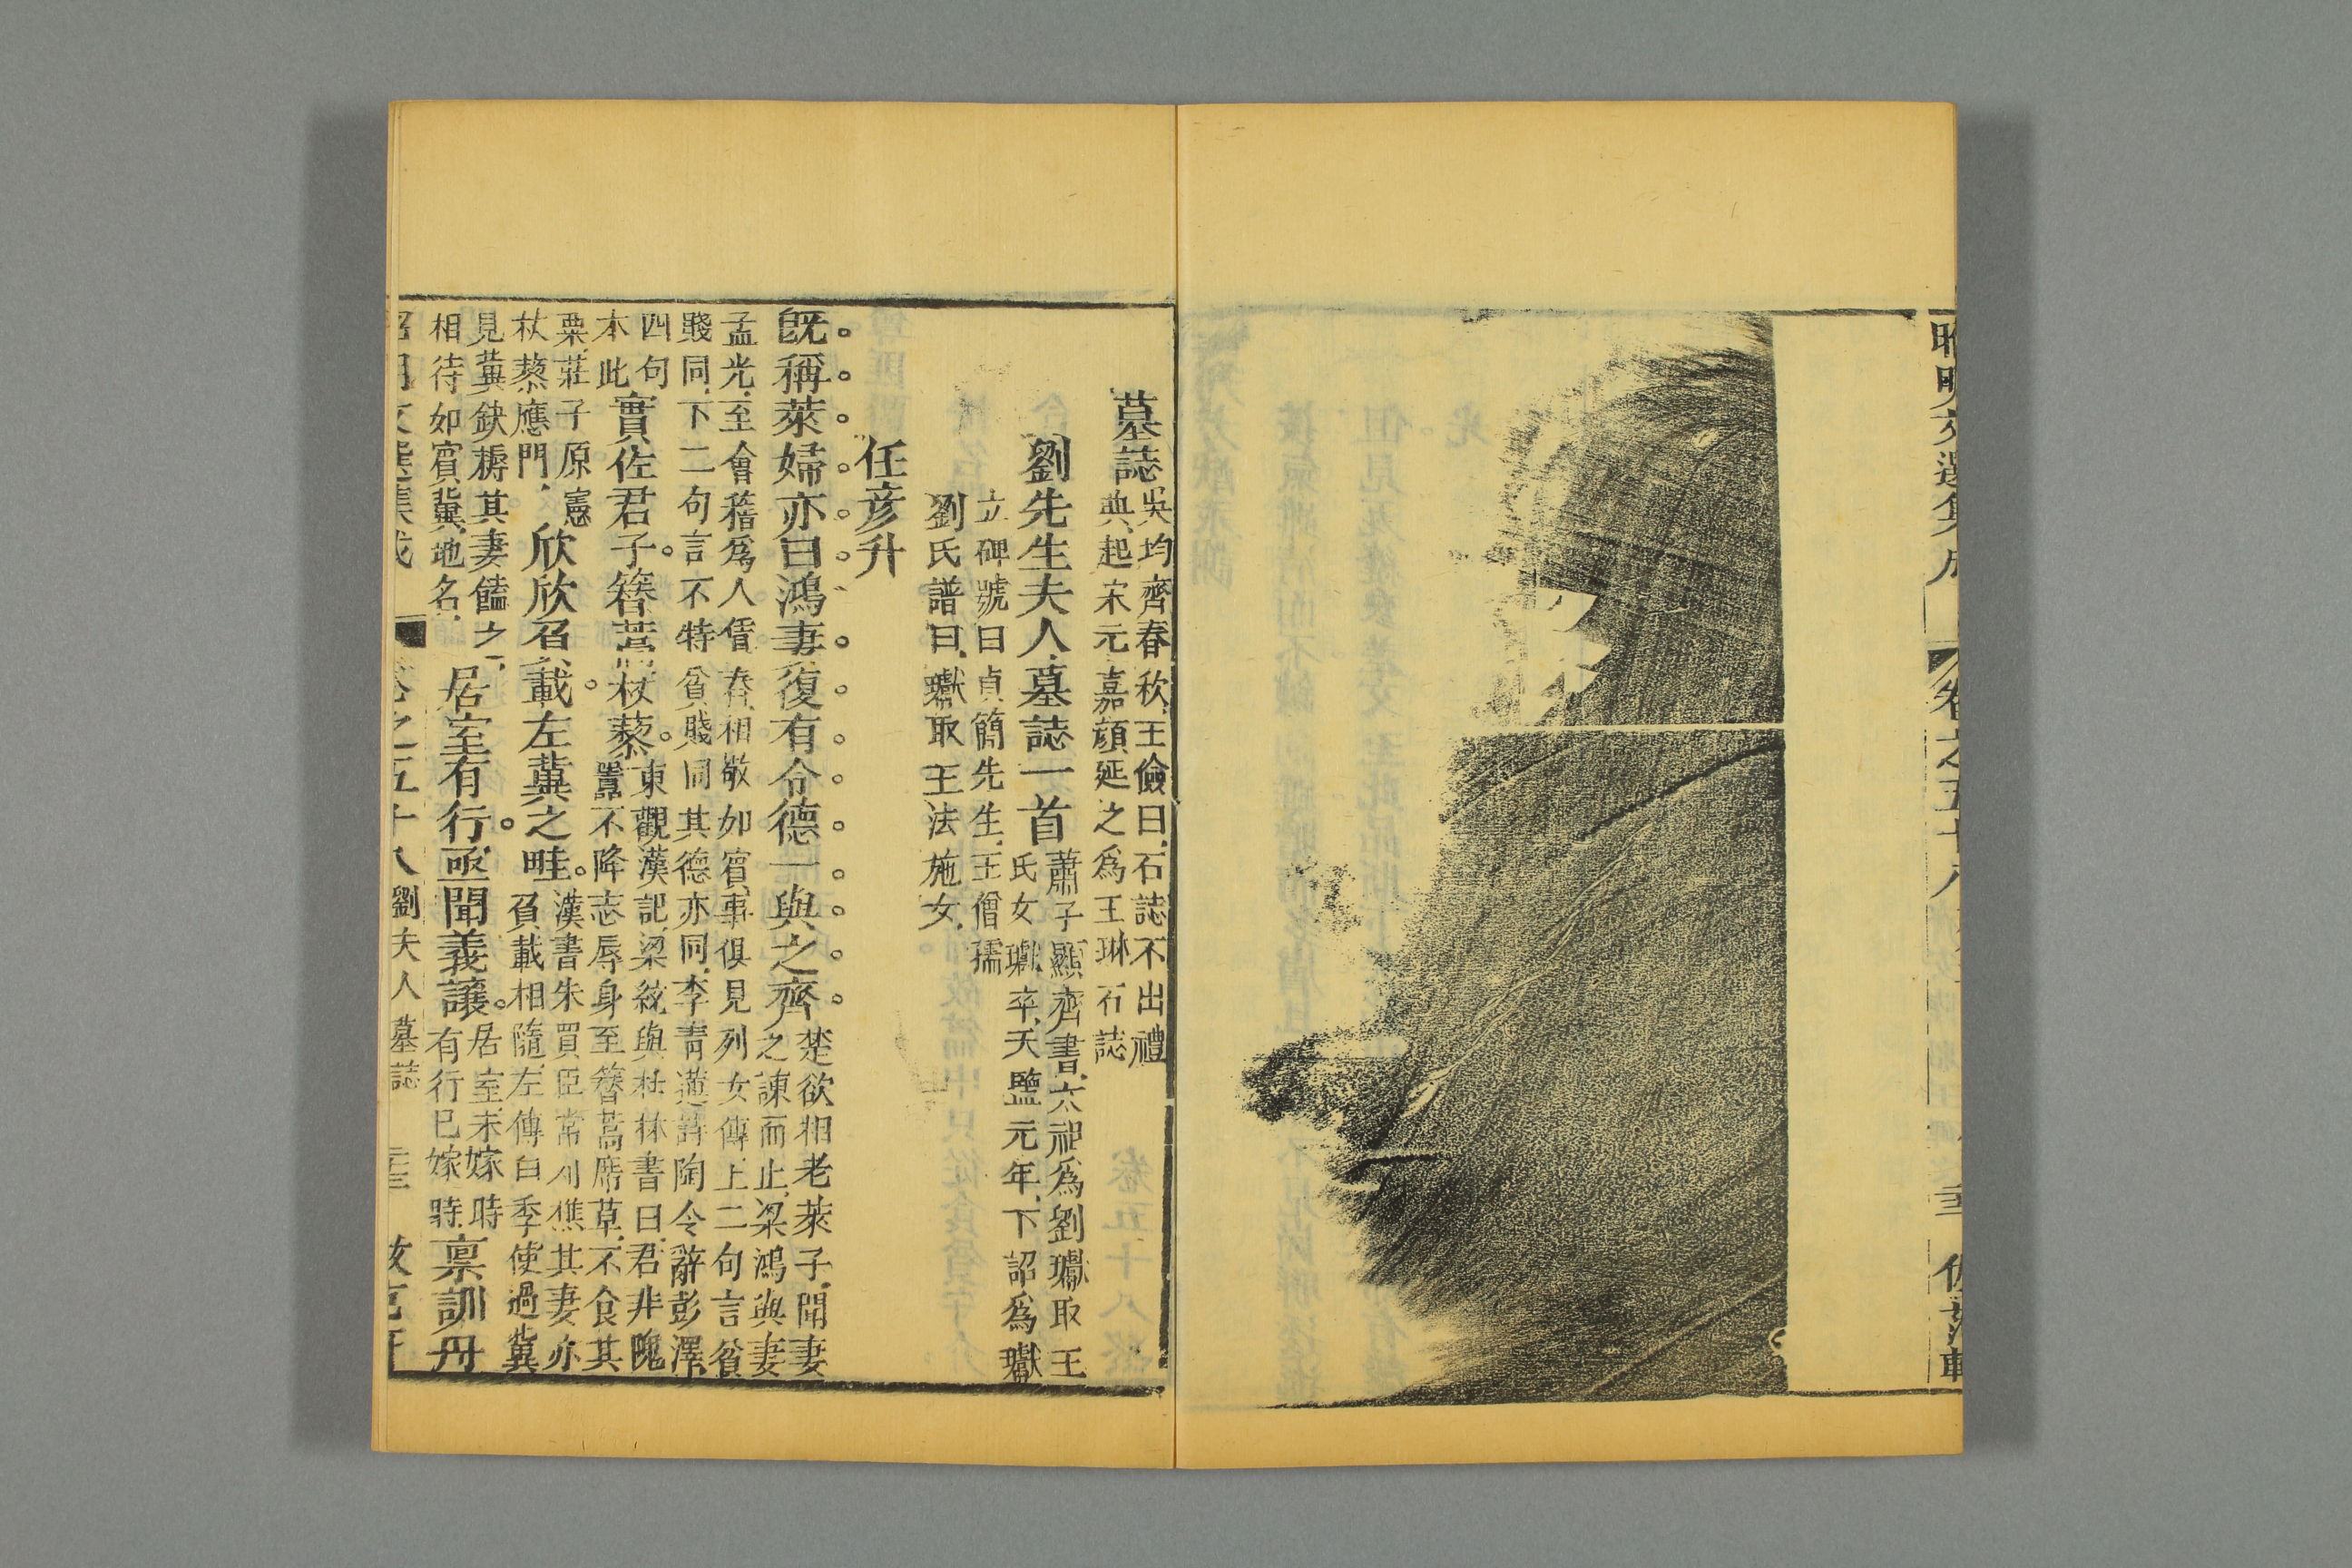 昭明文選集成 卷之五十八
墓誌 吳均齊春秋王儉曰石誌不出禮
典起宋元嘉顔延之為王琳石誌
劉先生夫人墓誌一首 蕭子顯齊書太祖為劉瓛取王
氏女瓛卒天監元年下詔為瓛
立碑號曰貞簡先生王僧孺
劉氏譜曰瓛取王法施女
任彦升
旣稱萊婦亦曰鴻妻復有令德一與之齊 楚欲相老萊子聞妻
之諫而止梁鴻與妻
孟光至會稽爲人賃舂相敬如賓事俱見列女傳上二句言貧
賤同下二句言不特貧賤同其德亦同李青蓮請陶令辭彭澤
四句
本此
實佐君子簪蒿杖藜 東觀漢記梁統與杜林書曰君非隗
囂不降志辱身至簪蒿席草不食其
粟莊子原憲
杖藜應門
欣欣召載左冀之畦 漢書朱買臣常刈樵其妻亦
負載相隨左傳臼季使過冀
見冀缺耨其妻饁之
相待如賓冀地名
居室有行亟聞義讓 居室未嫁時
有行已嫁時
禀訓丹
昭明文選集成 卷之五十八 劉夫人墓誌